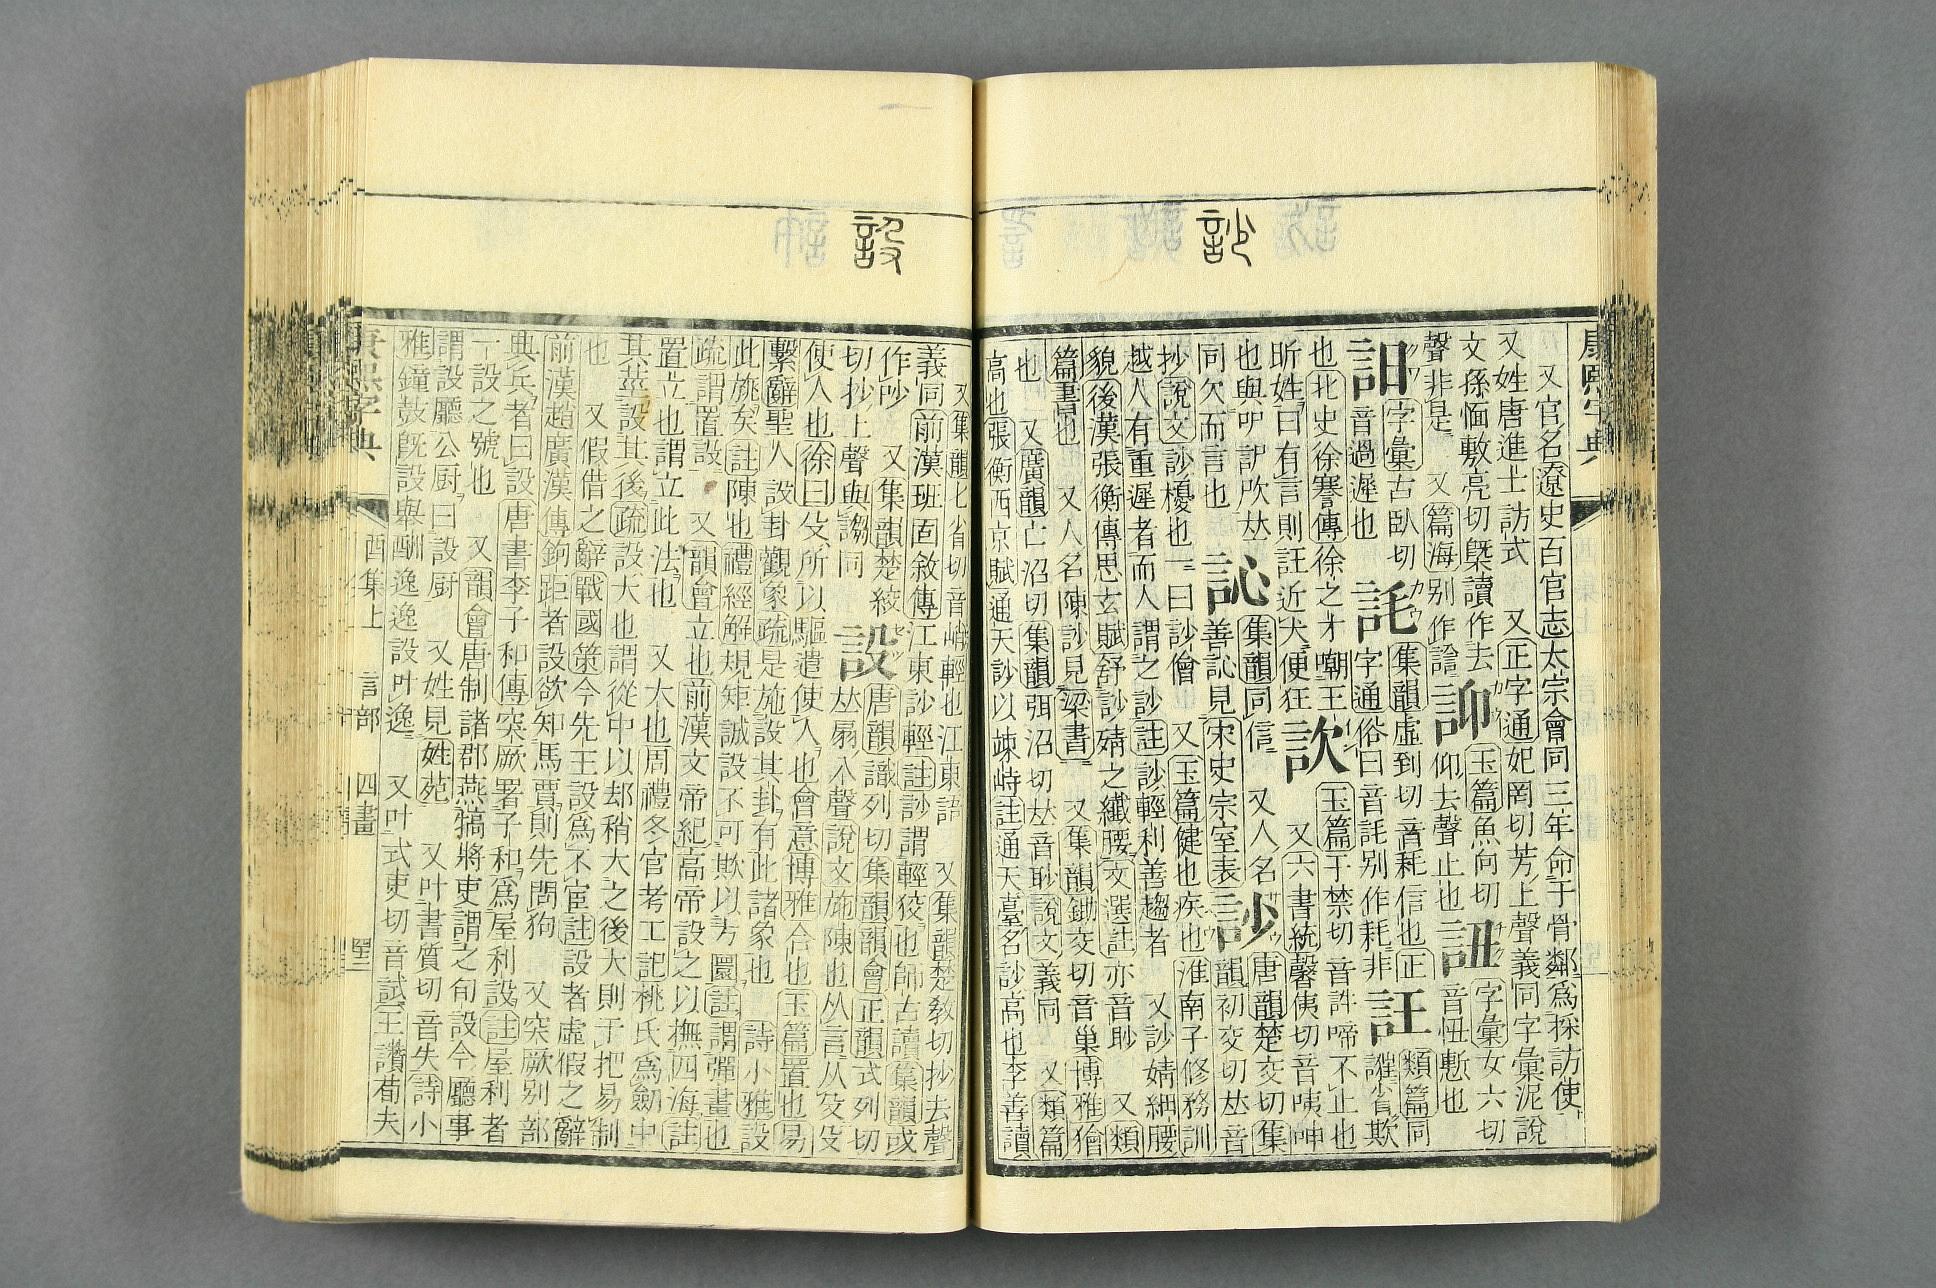 訬
康熙字典
又官名遼史百官志太宗會同三年命于骨鄰爲採訪使
又姓唐進士訪式 又正字通妃罔切芳上聲義同字彙泥說
文孫愐敷亮切槩讀作去 䛍 玉篇魚向切 䛏 字彙女六切
聲非是 又篇海别作䛫 仰去聲止也 音忸慙也
䛆 字彙古臥切 䚽 集韻虛到切音耗信也正 䚾 類篇同
音過遲也 字通俗曰音託别作耗非 謹省欺
也北史徐謇傳徐之才嘲王 㰤 玉篇于禁切音䚿啼不止也
昕姓曰有言則䚾近犬便狂 又六書統馨夷切音咦呻
也與吚訳㕧𠀤 訫 集韻同信 又人名 訬 唐韻楚交切集
同欠而言也 善訫見宋史宗室表 韻初交切𠀤音
抄說文訬擾也一曰訬獪 又玉篇健也疾也淮南子修務訓
越人有重遲者而人謂之訬註訬輕利善趨者 又訬婧細腰
貌後漢張衡傳思玄賦舒訬婧之纖腰文選註亦音眇 又類
篇書也 又人名陳訬見梁書 又集韻鋤交切音巢博雅獪
也 又廣韻亡沼切集韻弭沼切𠀤音眇說文義同 又類篇
高也張衡西京賦通天訬以竦峙註通天臺名訬高也李善讀
設
又集韻匕省切音㟰輕也江東語 又集韻楚敎切抄去聲
義同前漢班固敘傳江東訬輕註訬謂輕狡也師古讀集韻或
作吵 又集韻楚絞 設 唐韻識列切集韻韻會正韻式列切
切抄上聲與謅同 𠀤扇入聲說文施陳也从言从殳殳
使人也徐曰殳所以驅遣使人也會意博雅合也玉篇置也易
繫辭聖人設卦觀象疏是施設其卦有此諸象也 詩小雅設
此旐矣註陳也禮經解規矩誠設不可欺以方圜註謂彈畫也
疏謂置設 又韻會立也前漢文帝紀高帝設之以撫四海註
置立也謂立此法也 又大也周禮冬官考工記桃氏爲劒中
其莖設其後疏設大也謂從中以却稍大之後大則于把易制
也 又假借之辭戰國策今先王設爲不宦註設者虛假之辭
前漢趙廣漢傳鉤距者設欲知馬賈則先問狗 又突厥别部
典兵者曰設唐書李子和傳突厥署子和爲屋利設註屋利者
一設之號也 又韻會唐制諸郡燕犒將吏謂之旬設今廳事
謂設廳公厨曰設厨 又姓見姓苑 又叶書質切音失詩小
雅鐘鼓旣設舉醻逸逸設叶逸 又叶式吏切音試王讚荀夫
康熙字典 酉集上 言部 四畫